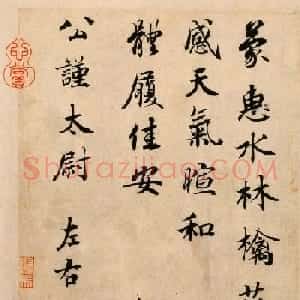 蒙惠水林檎
感天氣暄和
體履佳安
公謹太尉 左右
Shufaziliao.com